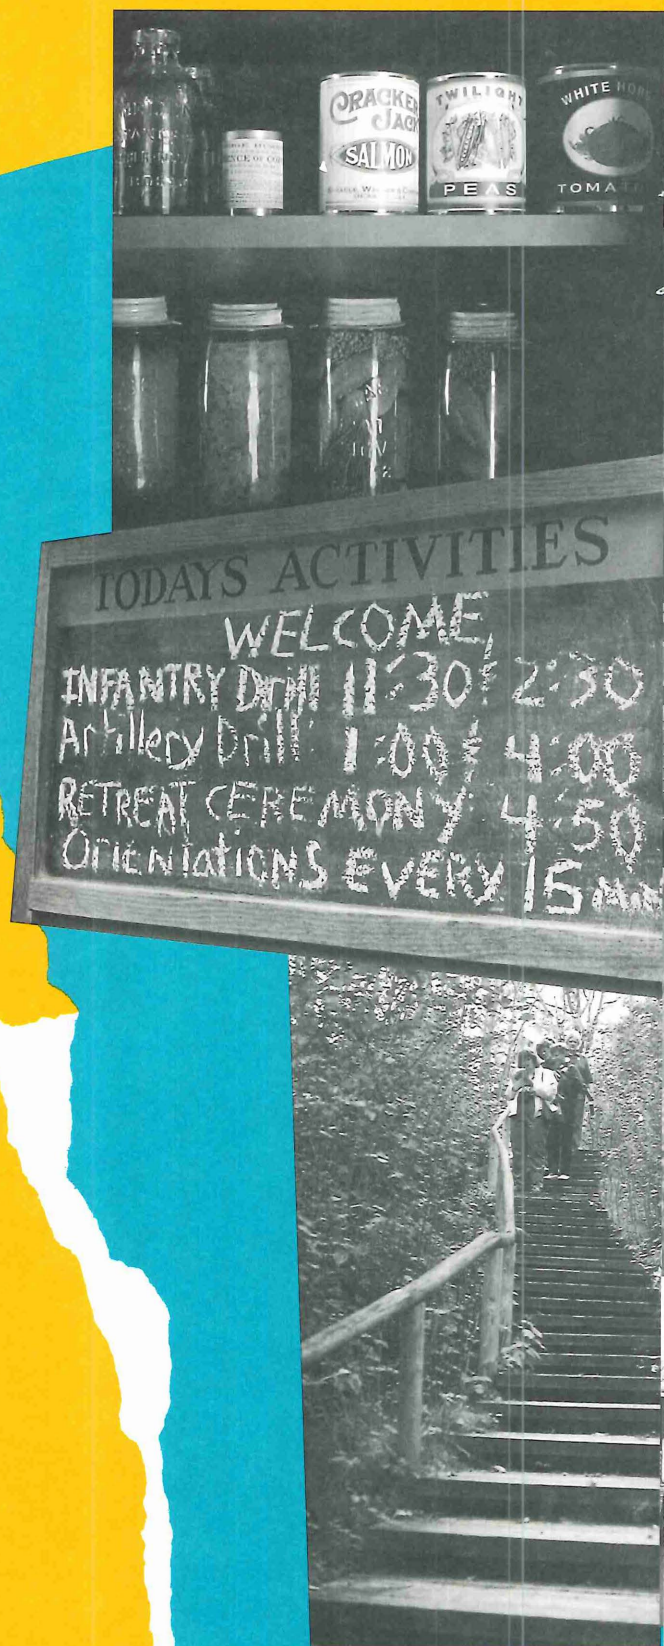 CRACKER
JACK
SALMON
TWILIGHT
PEAS
WHITE
TOMA
TODAYS ACTIVITIES
WELCOME,
INFANTRY Drill 11:30 & 2:30
Artillery Drill: 1:00 & 4:00
RETREAT CEREMONY 4:50
Orientations EVERY 15 MIN